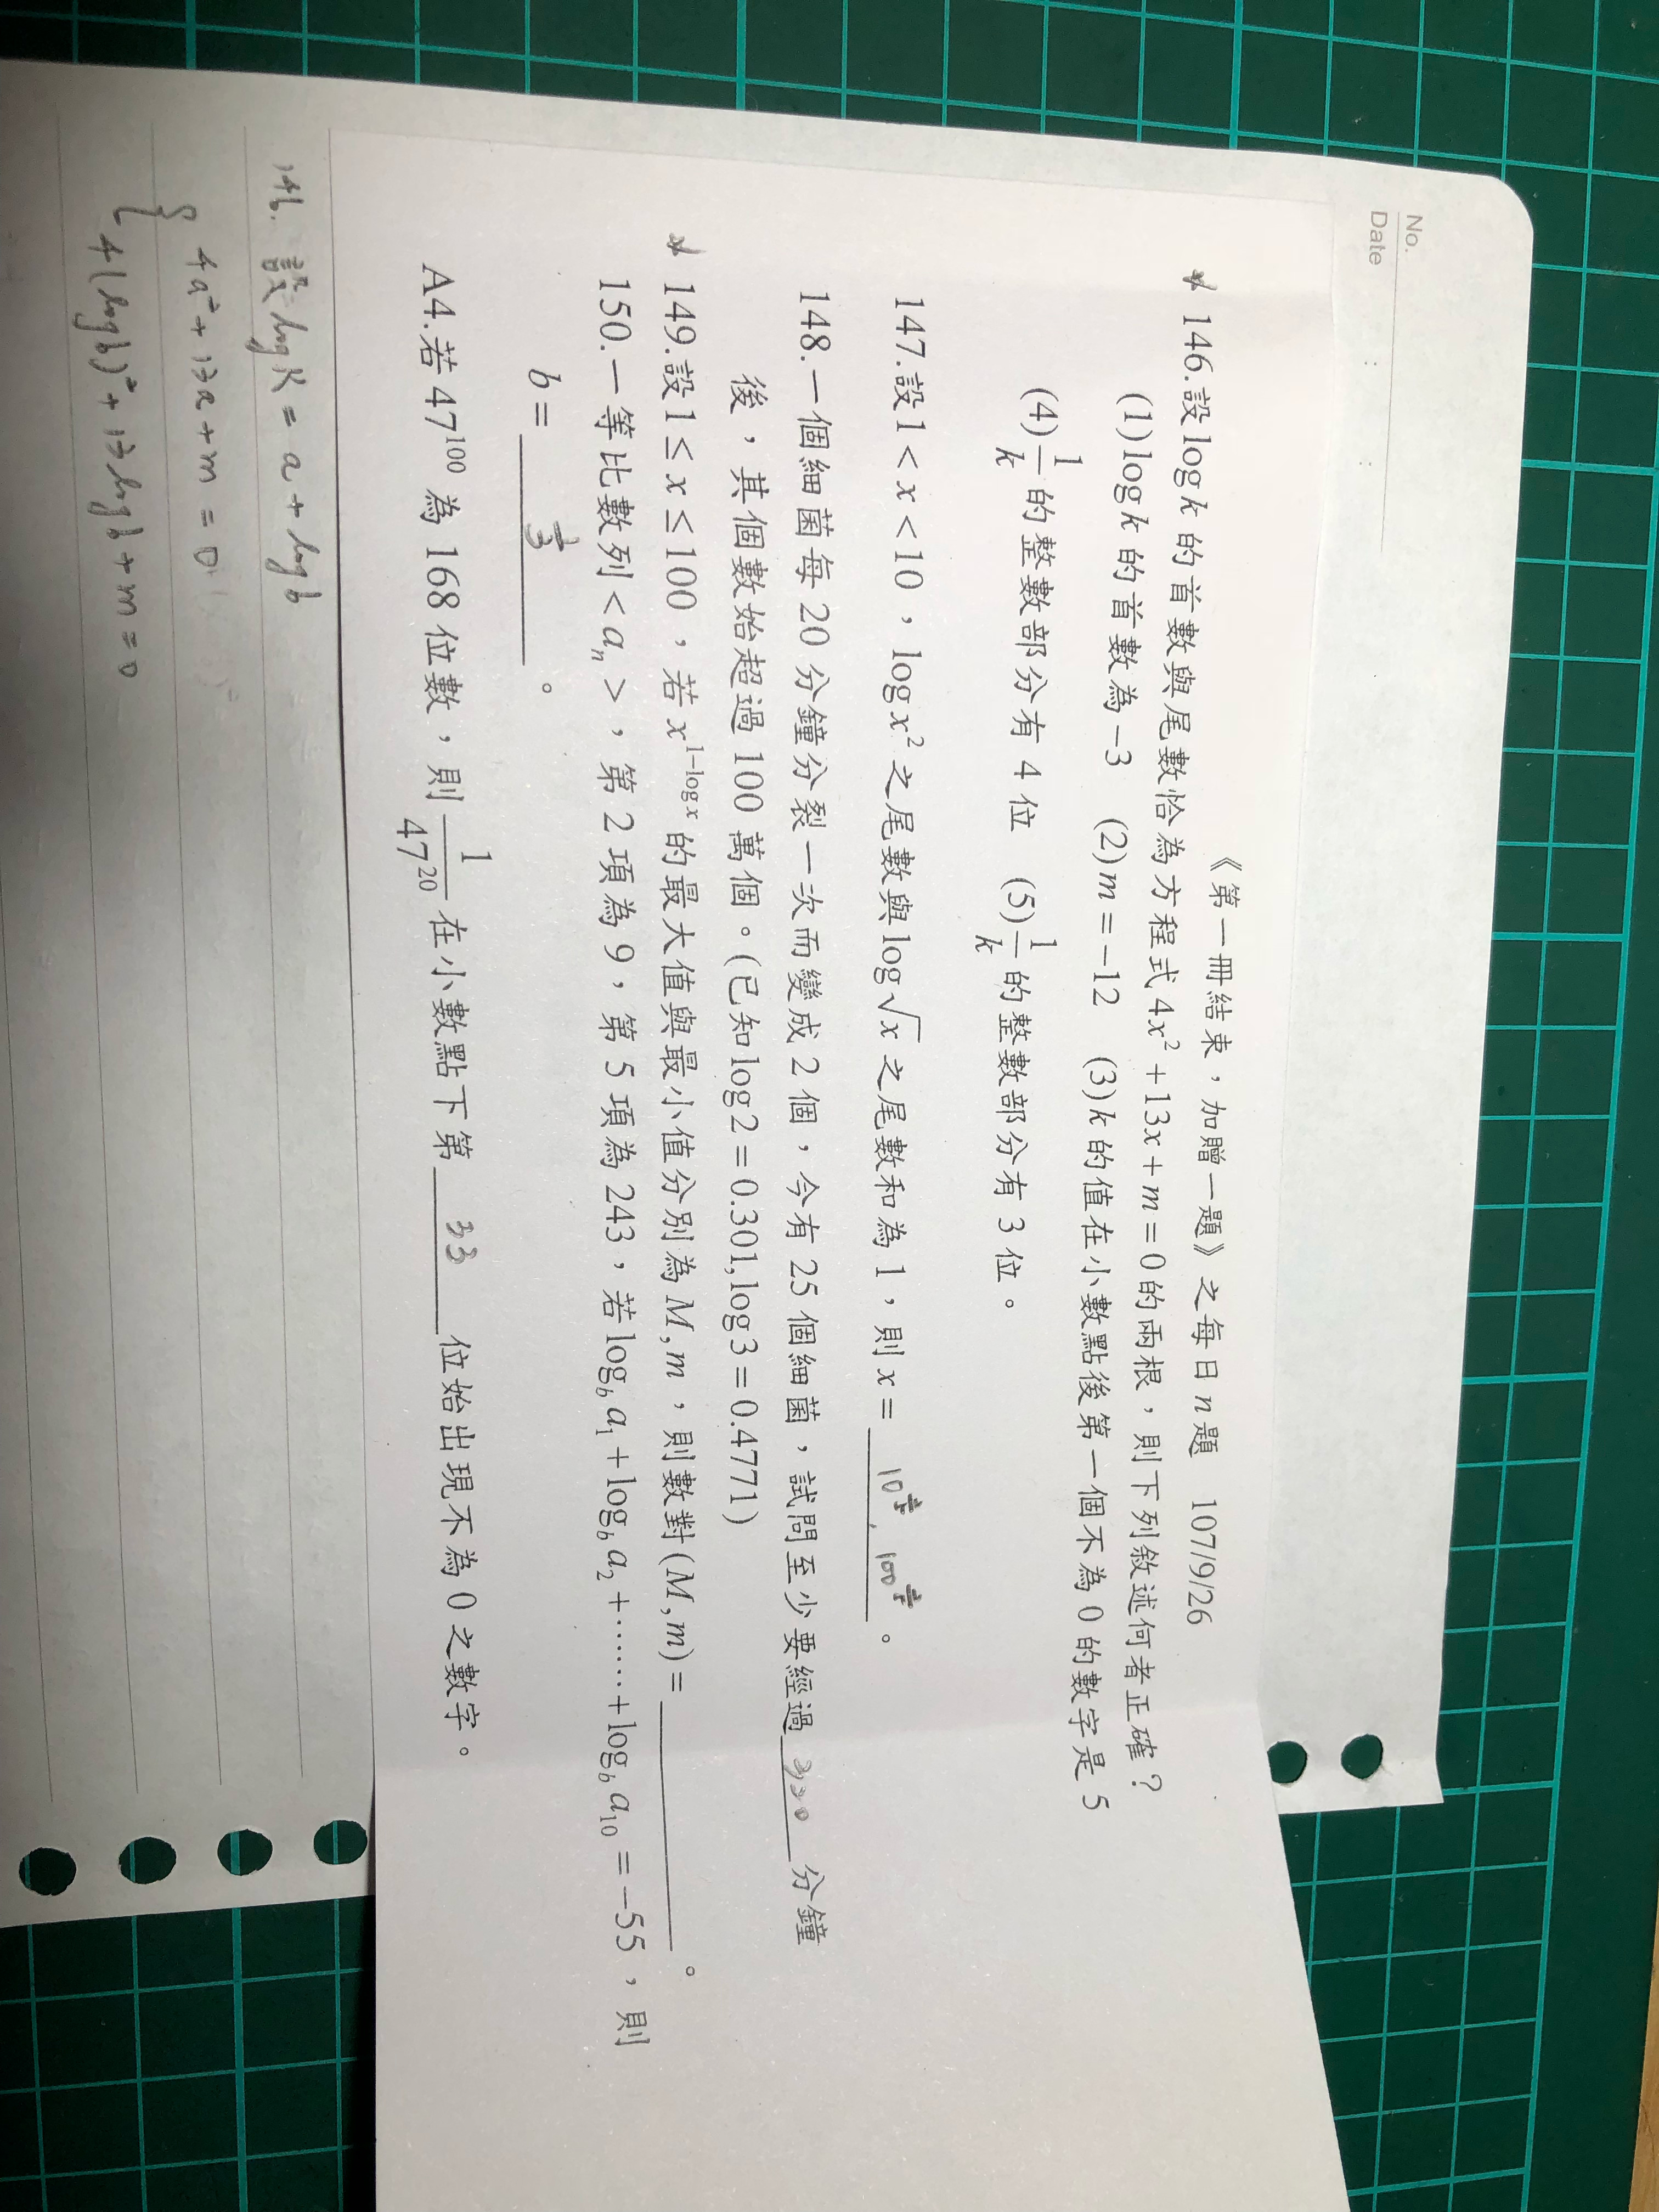 No.
Date : :
《第一冊結束，加贈一題》之每日 n 題 107/9/26
146.設 log k 的首數與尾數恰為方程式 4x² + 13x + m = 0 的兩根，則下列敘述何者正確？
(1) log k 的首數為 −3 (2) m = −12 (3) k 的值在小數點後第一個不為 0 的數字是 5
(4) 1/k 的整數部分有 4 位 (5) 1/k 的整數部分有 3 位。
147.設 1 < x < 10，log x² 之尾數與 log √x 之尾數和為 1，則 x = 10^(2/5), 100^(2/5)。
148.一個細菌每 20 分鐘分裂一次而變成 2 個，今有 25 個細菌，試問至少要經過 320 分鐘
後，其個數始超過 100 萬個。(已知 log 2 = 0.301, log 3 = 0.4771)
149.設 1 ≤ x ≤ 100，若 x^(1−log x) 的最大值與最小值分別為 M, m，則數對 (M, m) = ______。
150.一等比數列 < aₙ >，第 2 項為 9，第 5 項為 243，若 log_b a₁ + log_b a₂ + …… + log_b a₁₀ = −55，則
b = 1/3。
A4.若 47¹⁰⁰ 為 168 位數，則 1/47²⁰ 在小數點下第 33 位始出現不為 0 之數字。
146. 設 log K = a + log b
{ 4a² + 13a + m = 0
4(log b)² + 13 log b + m = 0